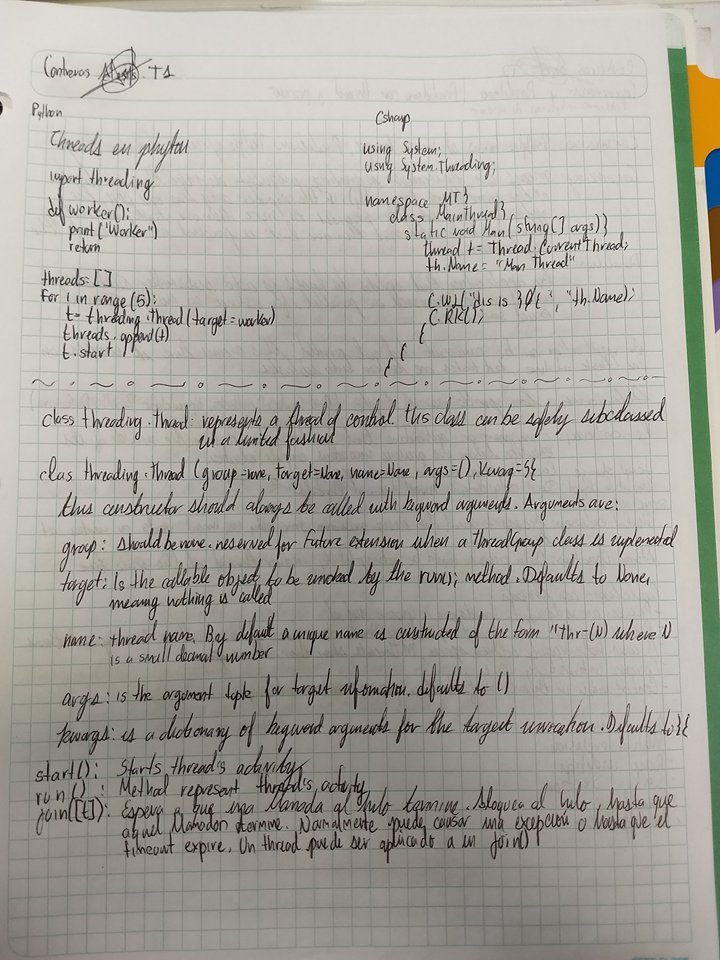 Contreras T1
Python
Threads en phyton
import threading
def worker():
print("Worker")
return
threads=[]
for i in range(5):
t= threading.thread(target=worker)
threads.append(t)
t.start
Csharp
using System;
using System.Threading;
namespace MT}
class MainThread}
static void Main(string[] args)}
thread t= Thread.CurrentThread;
th.Name = "Main Thread"
C.WL("this is }0{ ", "th.Name);
C.RK();
{
{
{
class threading.thread: represents a thread of control. this class can be safely subclassed
in a limited fashion
clas threading.thread (group=none, target=None, name=None, args=(), kwarg=}{
this constructor should always be called with keyword arguments. Arguments are:
group: should be none. reserved for future extension when a ThreadGroup class is implemented
target: Is the callable object to be invoked by the run(); method. Defaults to None,
meaning nothing is called
name: thread name. By default a unique name is constructed of the form "thr-(N) where N
is a small decimal number
args: is the argument tuple for target information. defaults to ()
kewargs: is a dictionary of keyword arguments for the target invocation. Defaults to }{
start(): Starts thread's activity
run(): Method represent thread's activity
join([t]): Espera a que una llamada al hilo termine. bloquea al hilo, hasta que
aquel llamadon termine. Normalmente puede causar una excepcion o hasta que el
timeout expire. Un thread puede ser aplicado a un join()